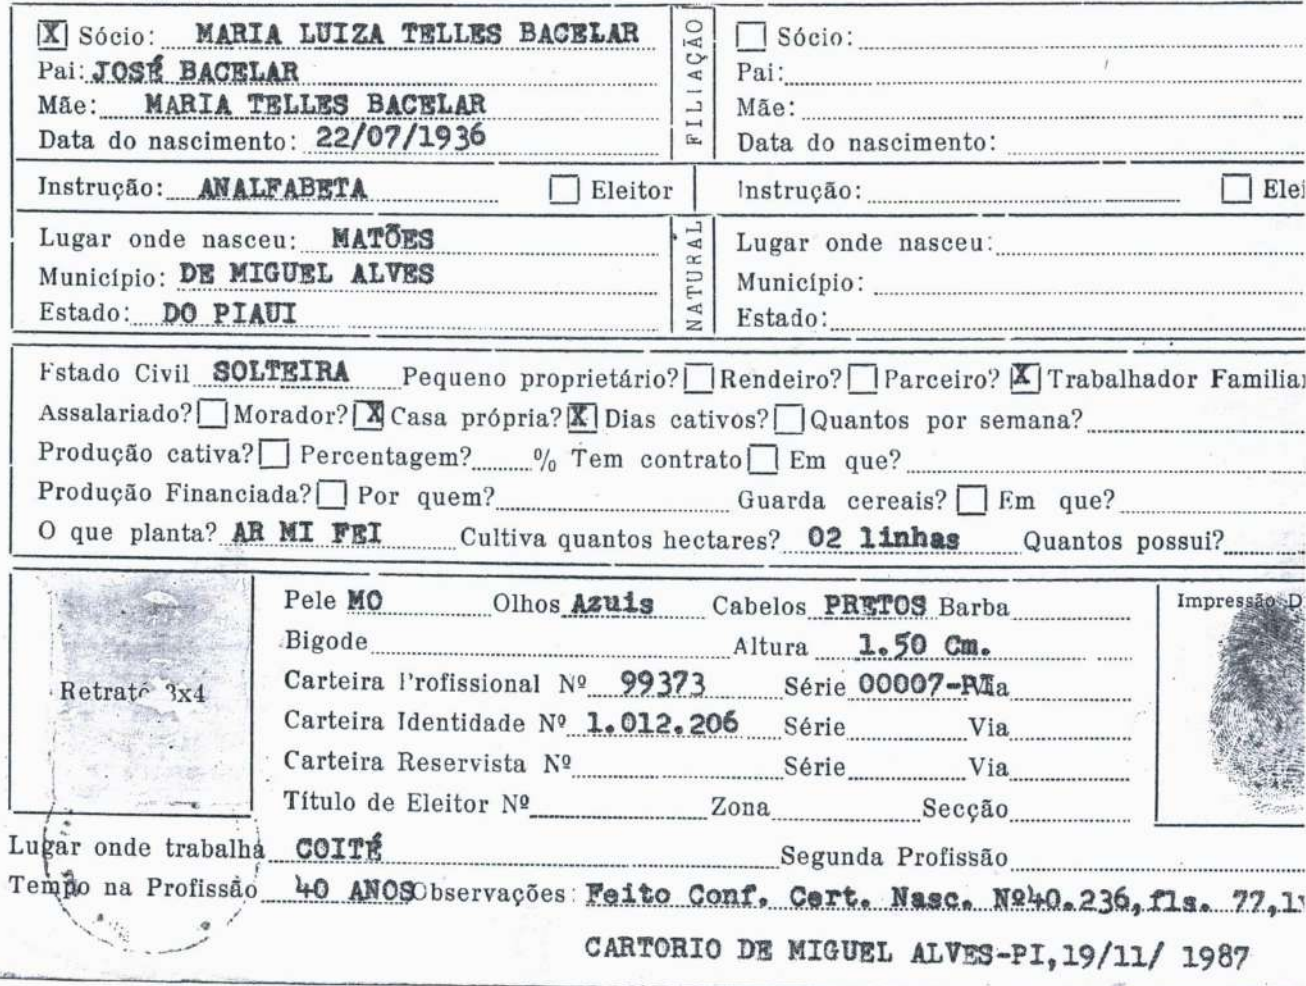 [X] Sócio: MARIA LUIZA TELLES BACELAR
Pai: JOSÉ BACELAR
Mãe: MARIA TELLES BACELAR
Data do nascimento: 22/07/1936
FILIAÇÃO
Sócio:
Pai:
Mãe:
Data do nascimento:
Instrução: ANALFABETA Eleitor
Instrução: Elei
Lugar onde nasceu: MATÕES
Município: DE MIGUEL ALVES
Estado: DO PIAUI
NATURAL
Lugar onde nasceu:
Município:
Estado:
Estado Civil SOLTEIRA Pequeno proprietário? Rendeiro? Parceiro? X Trabalhador Familiar
Assalariado? Morador? X Casa própria? X Dias cativos? Quantos por semana?
Produção cativa? Percentagem? % Tem contrato Em que?
Produção Financiada? Por quem? Guarda cereais? Em que?
O que planta? AR MI FEI Cultiva quantos hectares? 02 linhas Quantos possui?
Retrato 3x4
Pele MO Olhos Azuis Cabelos PRETOS Barba
Bigode Altura 1.50 Cm.
Carteira Profissional Nº 99373 Série 00007-
Carteira Identidade Nº 1.012.206 Série Via
Carteira Reservista Nº Série Via
Título de Eleitor Nº Zona Secção
Impressão D
Lugar onde trabalha COITÉ Segunda Profissão
Tempo na Profissão 40 ANOS Observações: Feito Conf. Cert. Nasc. Nº40.236,fls. 77,
CARTORIO DE MIGUEL ALVES-PI,19/11/ 1987